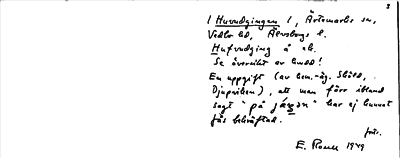 3
/ Huvudgingen /, Ärtemarks sn,
Vedbo hd, Älvsborgs l.
Hufvudging å ek.
Se översikt av budd!
En uppgift (av hem.-äg. Sköld,
Djupviken), att man förr ibland
sagt "på           " har ej kunnat
fås bekräftad.
E.           1949